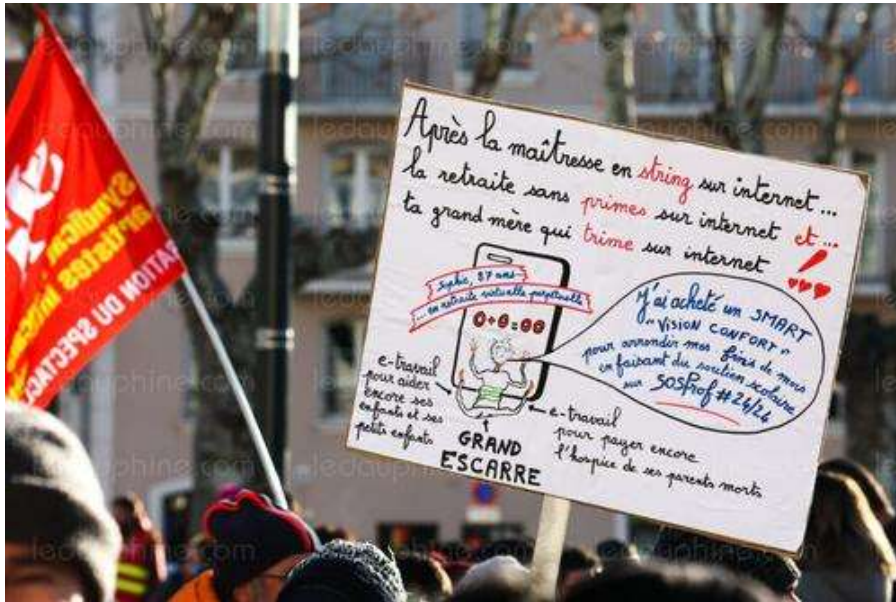 Syndicat
artistes
RATION DU SPECTAC
Après la maîtresse en string sur internet...
la retraite sans primes sur internet et...
ta grand mère qui trime sur internet !
Sophie, 87 ans
...en retraite virtuelle perpetuelle
0+0=00
J'ai acheté un SMART
"VISION CONFORT"
pour arrondir mes fins de mois
en faisant du soutien scolaire
sur SOSProf#24/24
e-travail
pour aider
encore ses
enfants et ses
petits enfants
GRAND
ESCARRE
e-travail
pour payer encore
l'hospice de ses parents morts
ledauphine.com